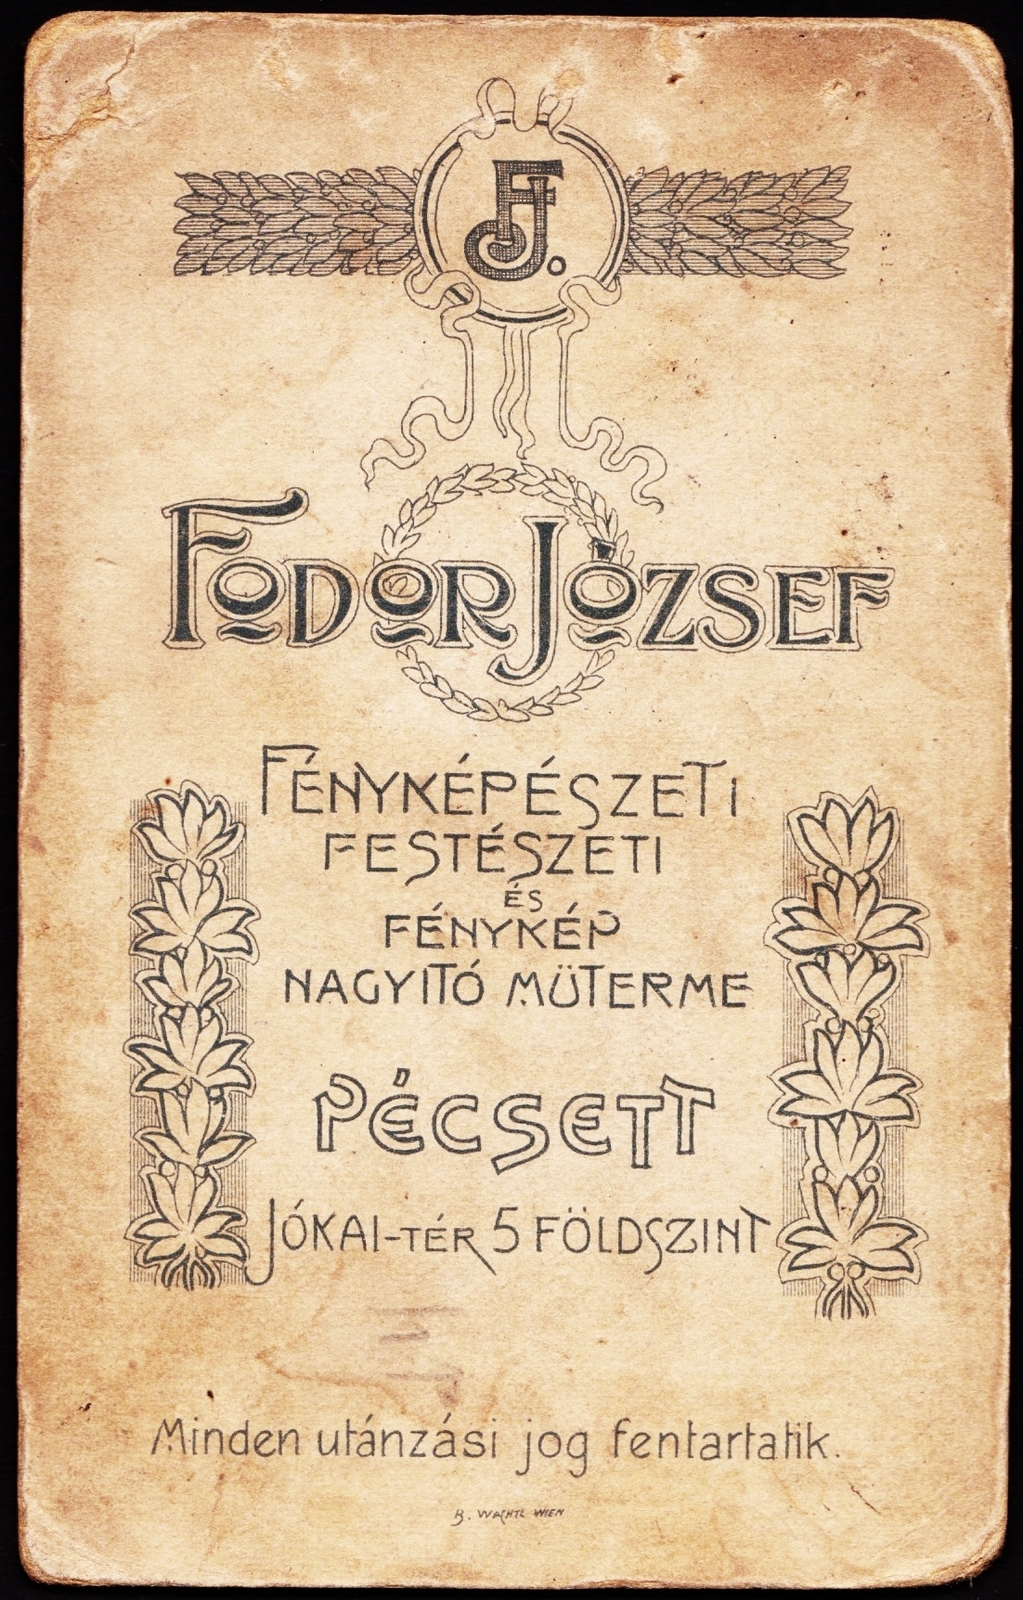 FJ.
FODOR JÓZSEF
FÉNYKÉPÉSZETI
FESTÉSZETI
ÉS
FÉNYKÉP
NAGYITÓ MÜTERME
PÉCSETT
JÓKAI-TÉR 5 FÖLDSZINT
Minden utánzási jog fentartatik.
B. WACHTL WIEN